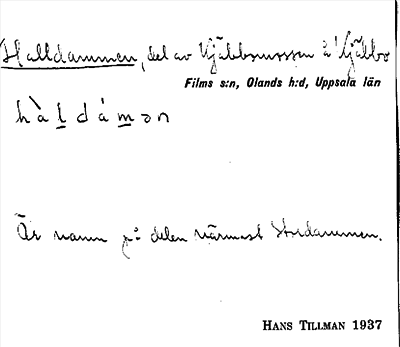 Halldammen, del av Gjäbbomossen å Gjäbbo
Films s:n, Olands h:d, Uppsala län
hàldámən
Är namn på delen närmast Stordammen.
HANS TILLMAN 1937